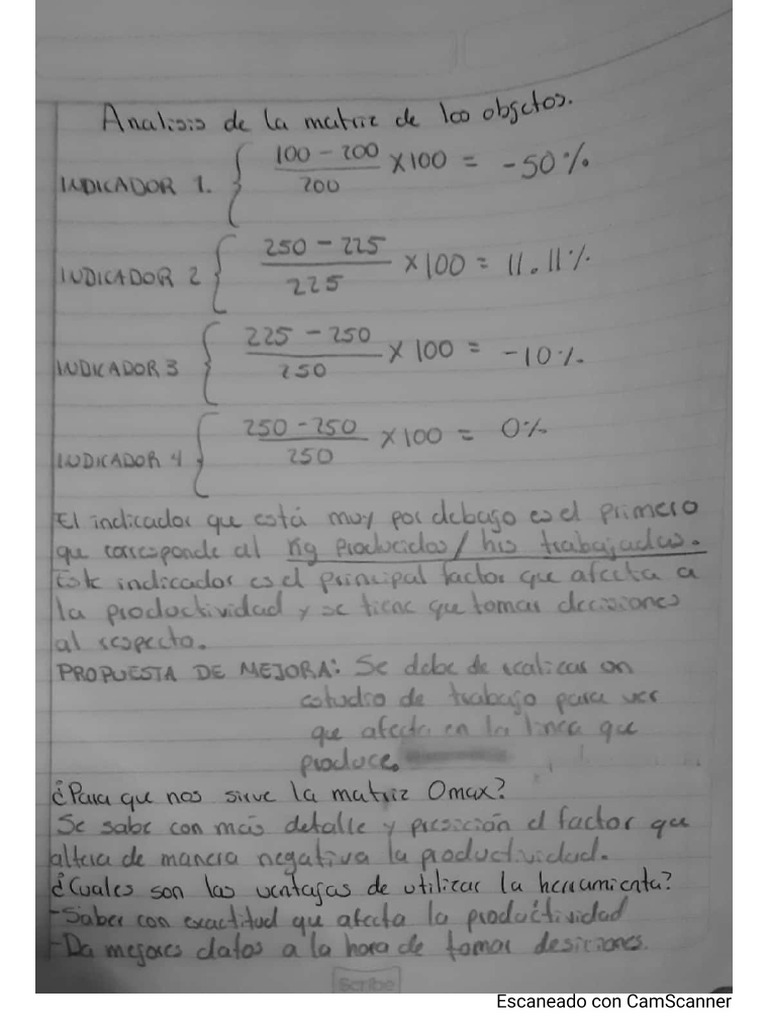 Analisis de la matriz de los objetos.
INDICADOR 1. { 100 - 200 / 200 x 100 = -50%
INDICADOR 2 { 250 - 225 / 225 x 100 = 11.11%
INDICADOR 3 { 225 - 250 / 250 x 100 = -10%
INDICADOR 4 { 250 - 250 / 250 x 100 = 0%
El indicador que está muy por debajo es el primero
que corresponde al Kg Producidos / hrs trabajadas.
Este indicador es el principal factor que afecta a
la productividad y se tiene que tomar decisiones
al respecto.
PROPUESTA DE MEJORA: Se debe de realizar un
estudio de trabajo para ver
que afecta en la linea que
produce.
¿Para que nos sirve la matriz Omax?
Se sabe con más detalle y presición el factor que
altera de manera negativa la productividad.
¿Cuales son las ventajas de utilizar la herramienta?
-Saber con exactitud que afecta la productividad
-Da mejores datos a la hora de tomar desiciones.
Scribe
Escaneado con CamScanner